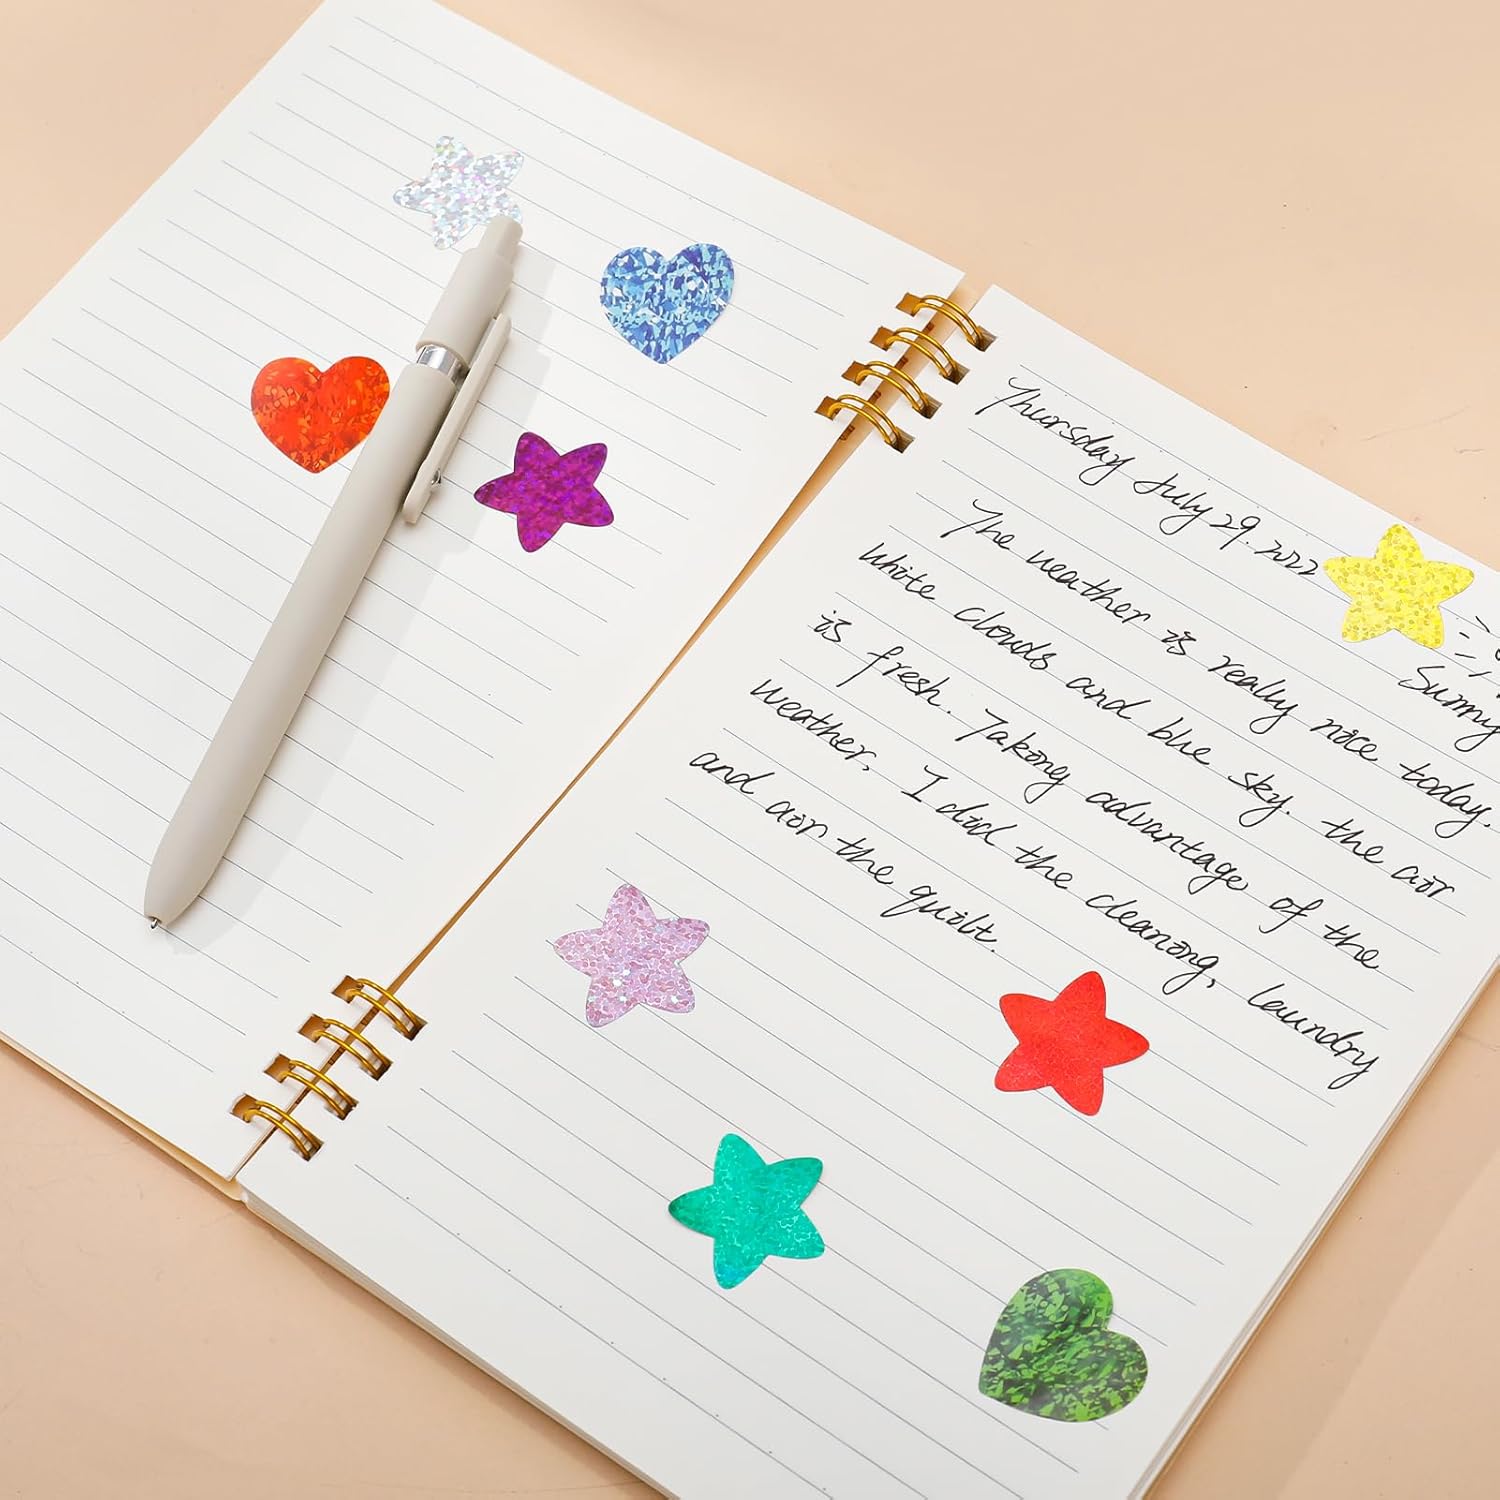 Thursday July 29. 2022
Sunny
The weather is really nice today.
White clouds and blue sky. the air
is fresh. Taking advantage of the
weather, I did the cleaning, laundry
and air the quilt.